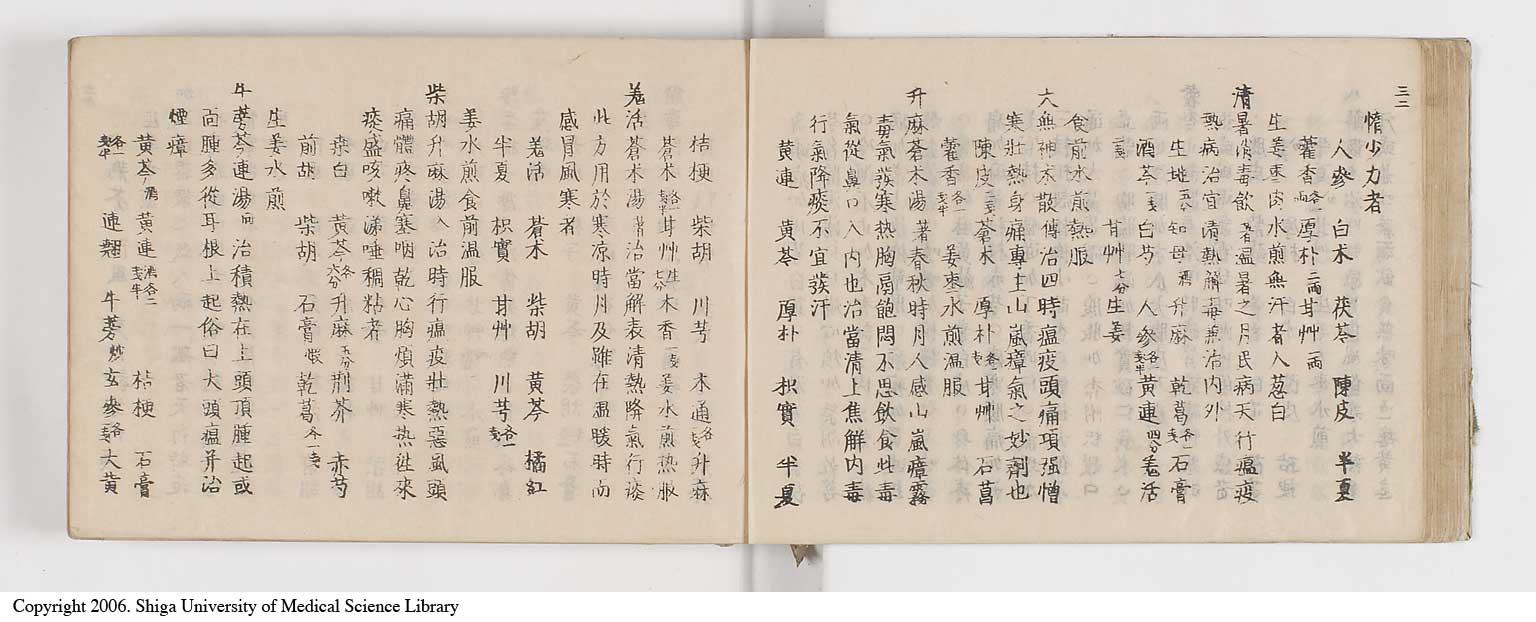 三二
惰少力者
人參 白朮 茯苓 陳皮 半夏
藿香各一兩厚朴二兩甘艸一兩
生姜棗肉水煎無汗者入葱白
清暑消毒飲 治温暑之月民病天行瘟疫
熱病治宜清熱解毒兼治内外
生地 知母 升麻 乾葛各一戔石膏
酒芩 白芍 人參各七戔半黃連四分羗活
甘艸七分生姜
食前水煎熱服
六無神朮散傳治四時瘟疫頭痛項强憎
寒壯熱身痛專主山嵐瘴氣之妙劑也
陳皮二戔蒼朮 厚朴各一戔甘艸 石菖
藿香各一戔半 姜棗水煎温服
升麻蒼朮湯 春秋時月人感山嵐瘴霧
毒氣發寒热胸膈飽悶不思飲食此毒
氣從鼻口入内也治當清上焦解内毒
行氣降痰不宜發汗
黃連 黃芩 厚朴 枳實 半夏
桔梗 柴胡 川芎 木通各一戔升麻
蒼朮各一戔半甘艸生七分木香一戔姜水煎热服
羗活蒼朮湯 治當解表清熱降氣行痰
此方用於寒凉時月及雖在温暖時而
感冒風寒者
羗活 蒼朮 柴胡 黃芩 橘紅
半夏 枳實 甘艸 川芎各一戔
姜水煎食前温服
柴胡升麻湯 治時行瘟疫壯熱惡風頭
痛體疼鼻塞咽乾心胸煩滿寒热徃來
痰盛咳嗽涕唾稠粘者
桒白 黃芩各六分升麻五分荆芥 赤芍
前胡 柴胡 石膏煅乾葛各一戔
生姜水煎
牛蒡芩連湯 治積熱在上頭頂腫起或
面腫多從耳根上起俗曰大頭瘟并治
煙瘴
黃芩酒黃連酒各二戔半 桔梗 石膏
各一戔半 連翹 牛蒡炒玄參各一戔大黃
Copyright 2006. Shiga University of Medical Science Library